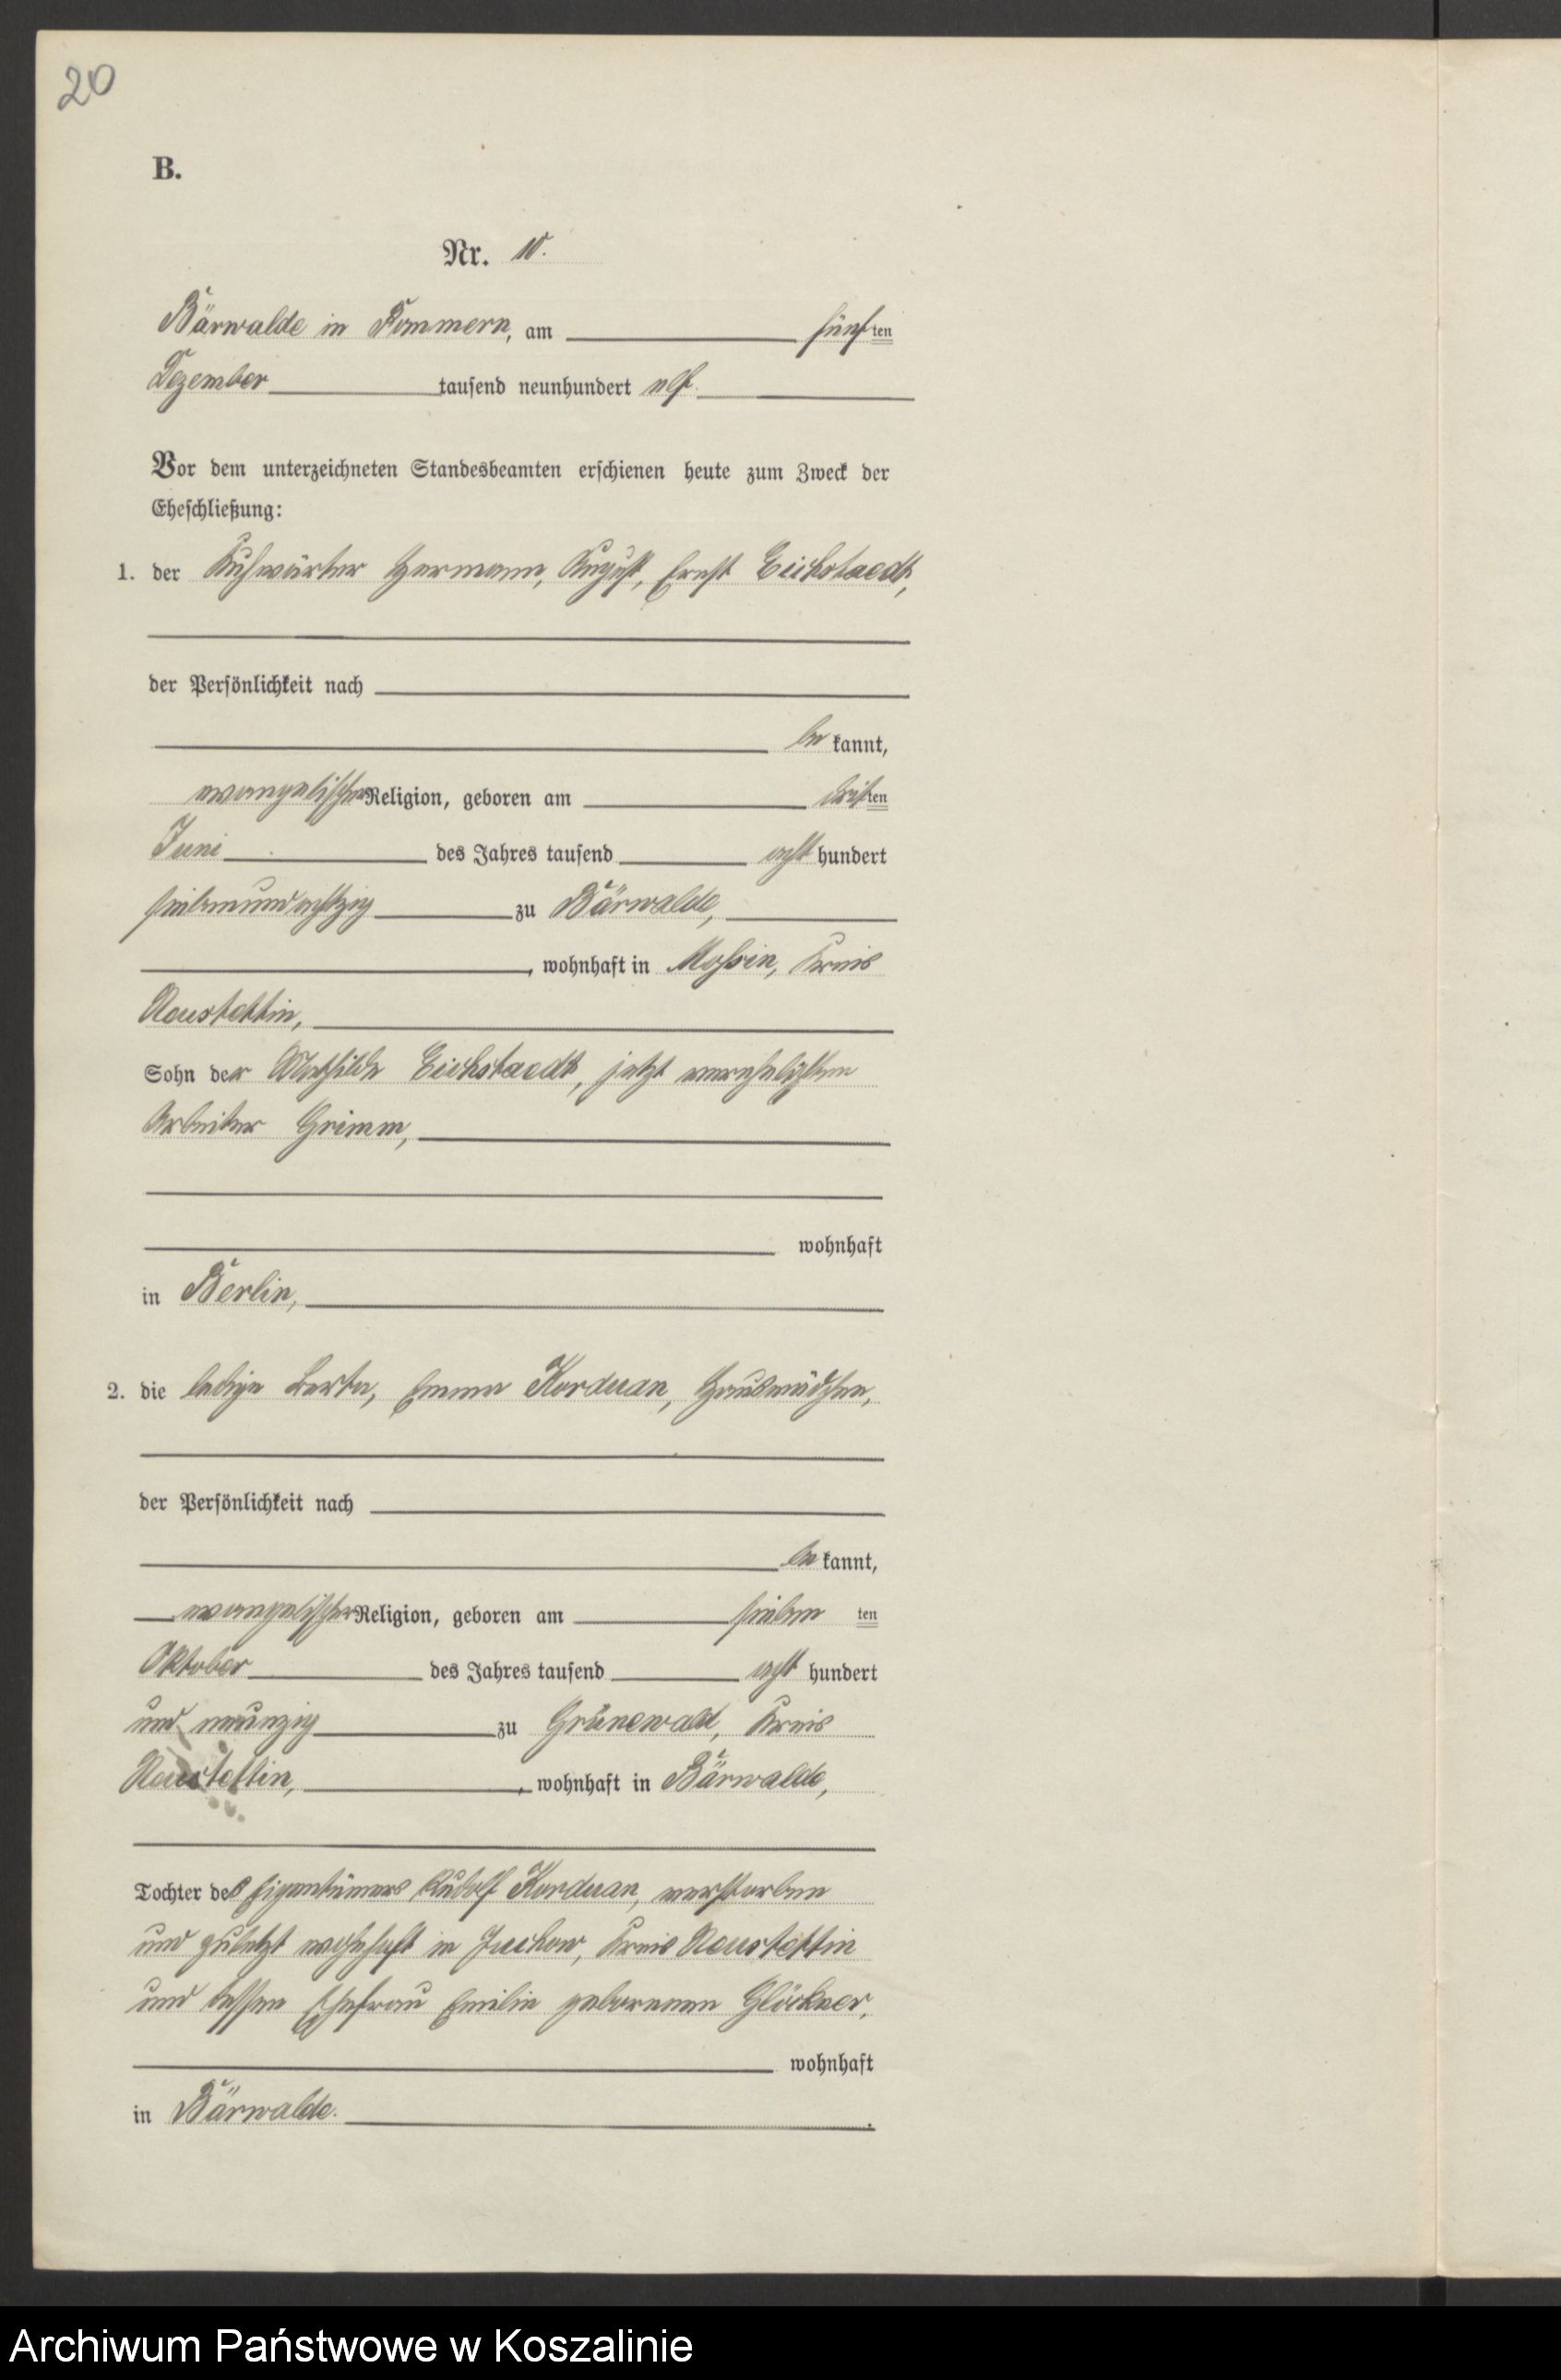 20
B.
Nr. 10.
Bärwalde in Pommern, am fünften
Dezember tausend neunhundert elf.
Vor dem unterzeichneten Standesbeamten erschienen heute zum Zweck der
Eheschließung:
1. der Kuhwärter Hermann, August, Ernst Eichstaedt,
der Persönlichkeit nach
be kannt,
evangelischer Religion, geboren am dritten
Juni des Jahres tausend acht hundert
siebenundachtzig zu Bärwalde,
, wohnhaft in Mossin, Kreis
Neustettin,
Sohn der Mathilde Eichstaedt, jetzt verehelichten
Arbeiter Grimm,
wohnhaft
in Berlin,
2. die ledige Berta, Emma Korduan, Hausmädchen,
der Persönlichkeit nach
be kannt,
evangelischer Religion, geboren am sieben ten
Oktober des Jahres tausend acht hundert
und neunzig zu Grünewald, Kreis
Neustettin, , wohnhaft in Bärwalde,
Tochter des Eigentümers Rudolf Korduan, verstorben
und zuletzt wohnhaft in Juchow, Kreis Neustettin
und dessen Ehefrau Emilie geborenen Glöckner,
wohnhaft
in Bärwalde. .
Archiwum Państwowe w Koszalinie